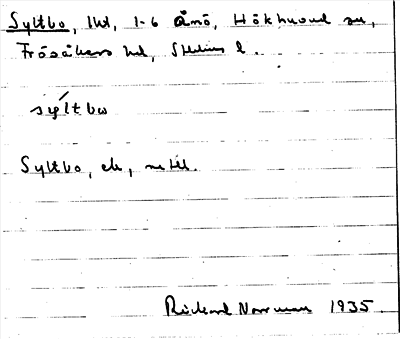 Syltbo, 1/4, 1-6 Åmö, Hökhuvud sn,
Frösåkers hd, Sthlms l.
syltbω
Syltbo, ek,
Rickard Norrman 1935